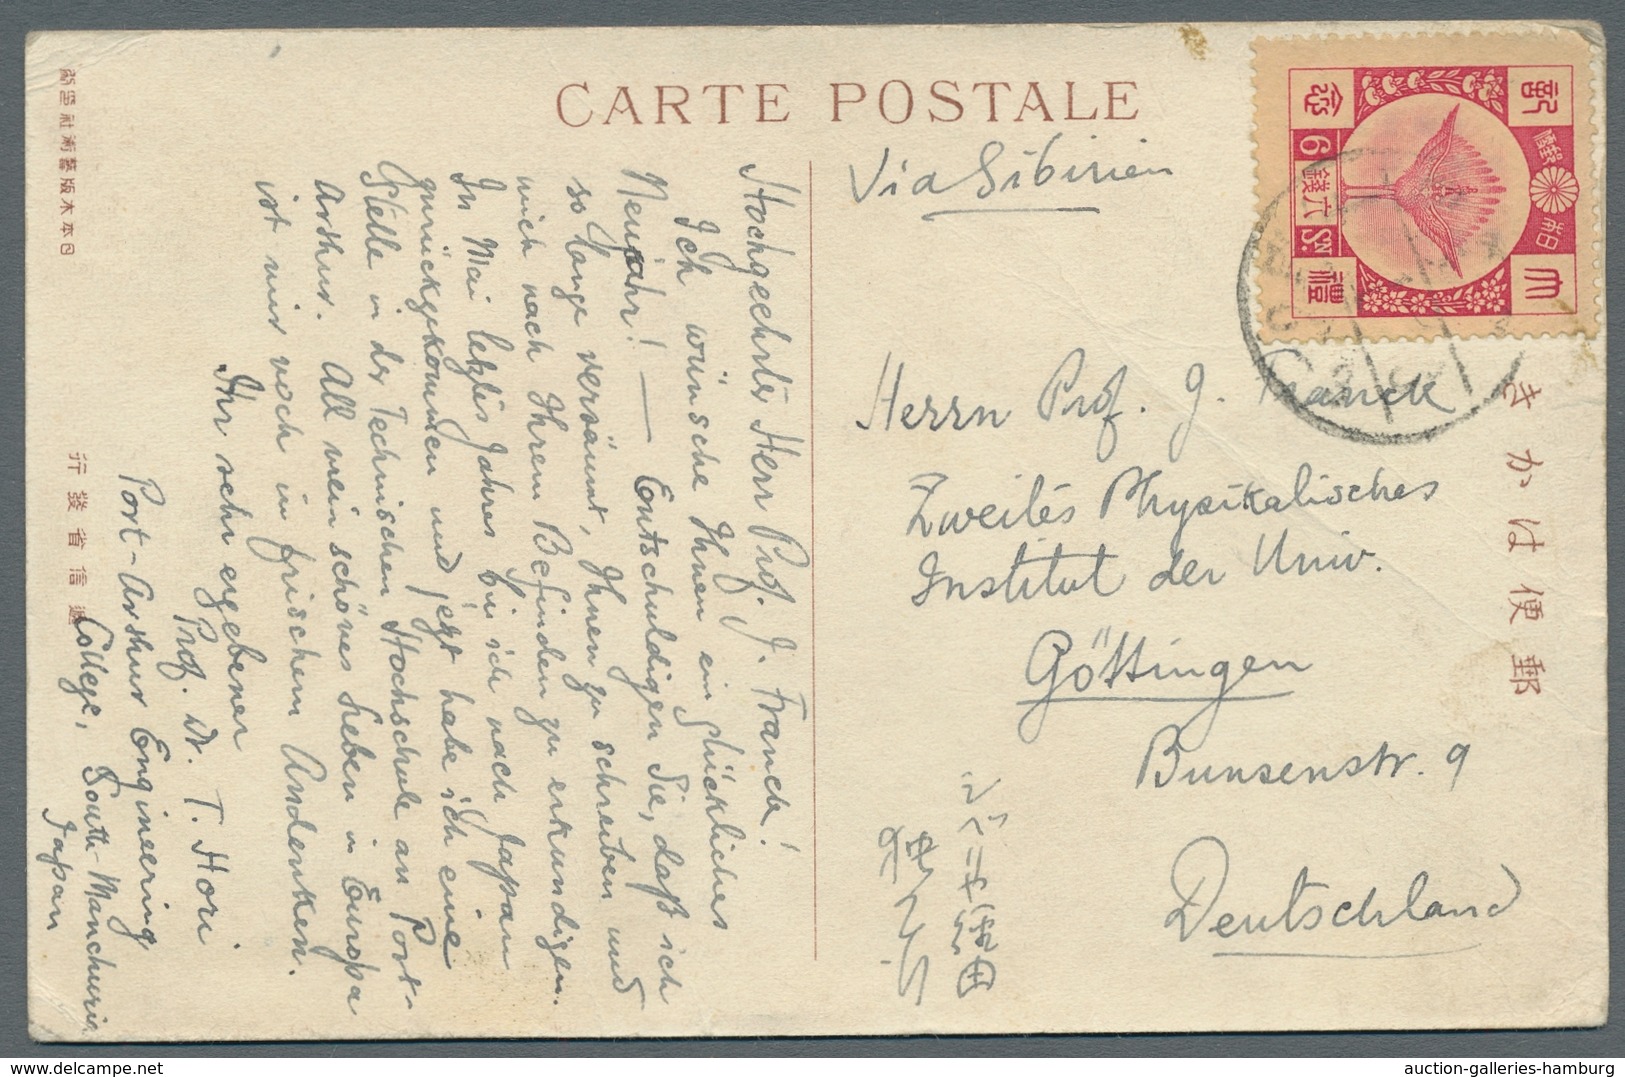 CARTE POSTALE
Via Sibirien
Herrn Prof. J. Franck
Zweites Physikalisches
Institut der Univ.
Göttingen
Bunsenstr. 9
Deutschland
きかは便郵
大禮
記念
郵便
日
6 錢六 SN.
Hochgeehrter Herr Prof. J. Franck!
Ich wünsche Ihnen ein glückliches
Neujahr! — Entschuldigen Sie, daß ich
so lange versäumt, Ihnen zu schreiben und
mich nach Ihrem Befinden zu erkundigen.
In Mai letztes Jahres bin ich nach Japan
zurückgekommen und jetzt habe ich eine
Stelle in der Technischen Hochschule an Port-
Arthur. All mein schönes Leben in Europa
ist mir noch in frischem Andenken.
Ihr sehr ergebener
Prof. Dr. T. Hori
Port-Arthur Engineering
College, South-Manchuria
Japan
行發省信遞
社術藝版木本日
auction-galleries-hamburg